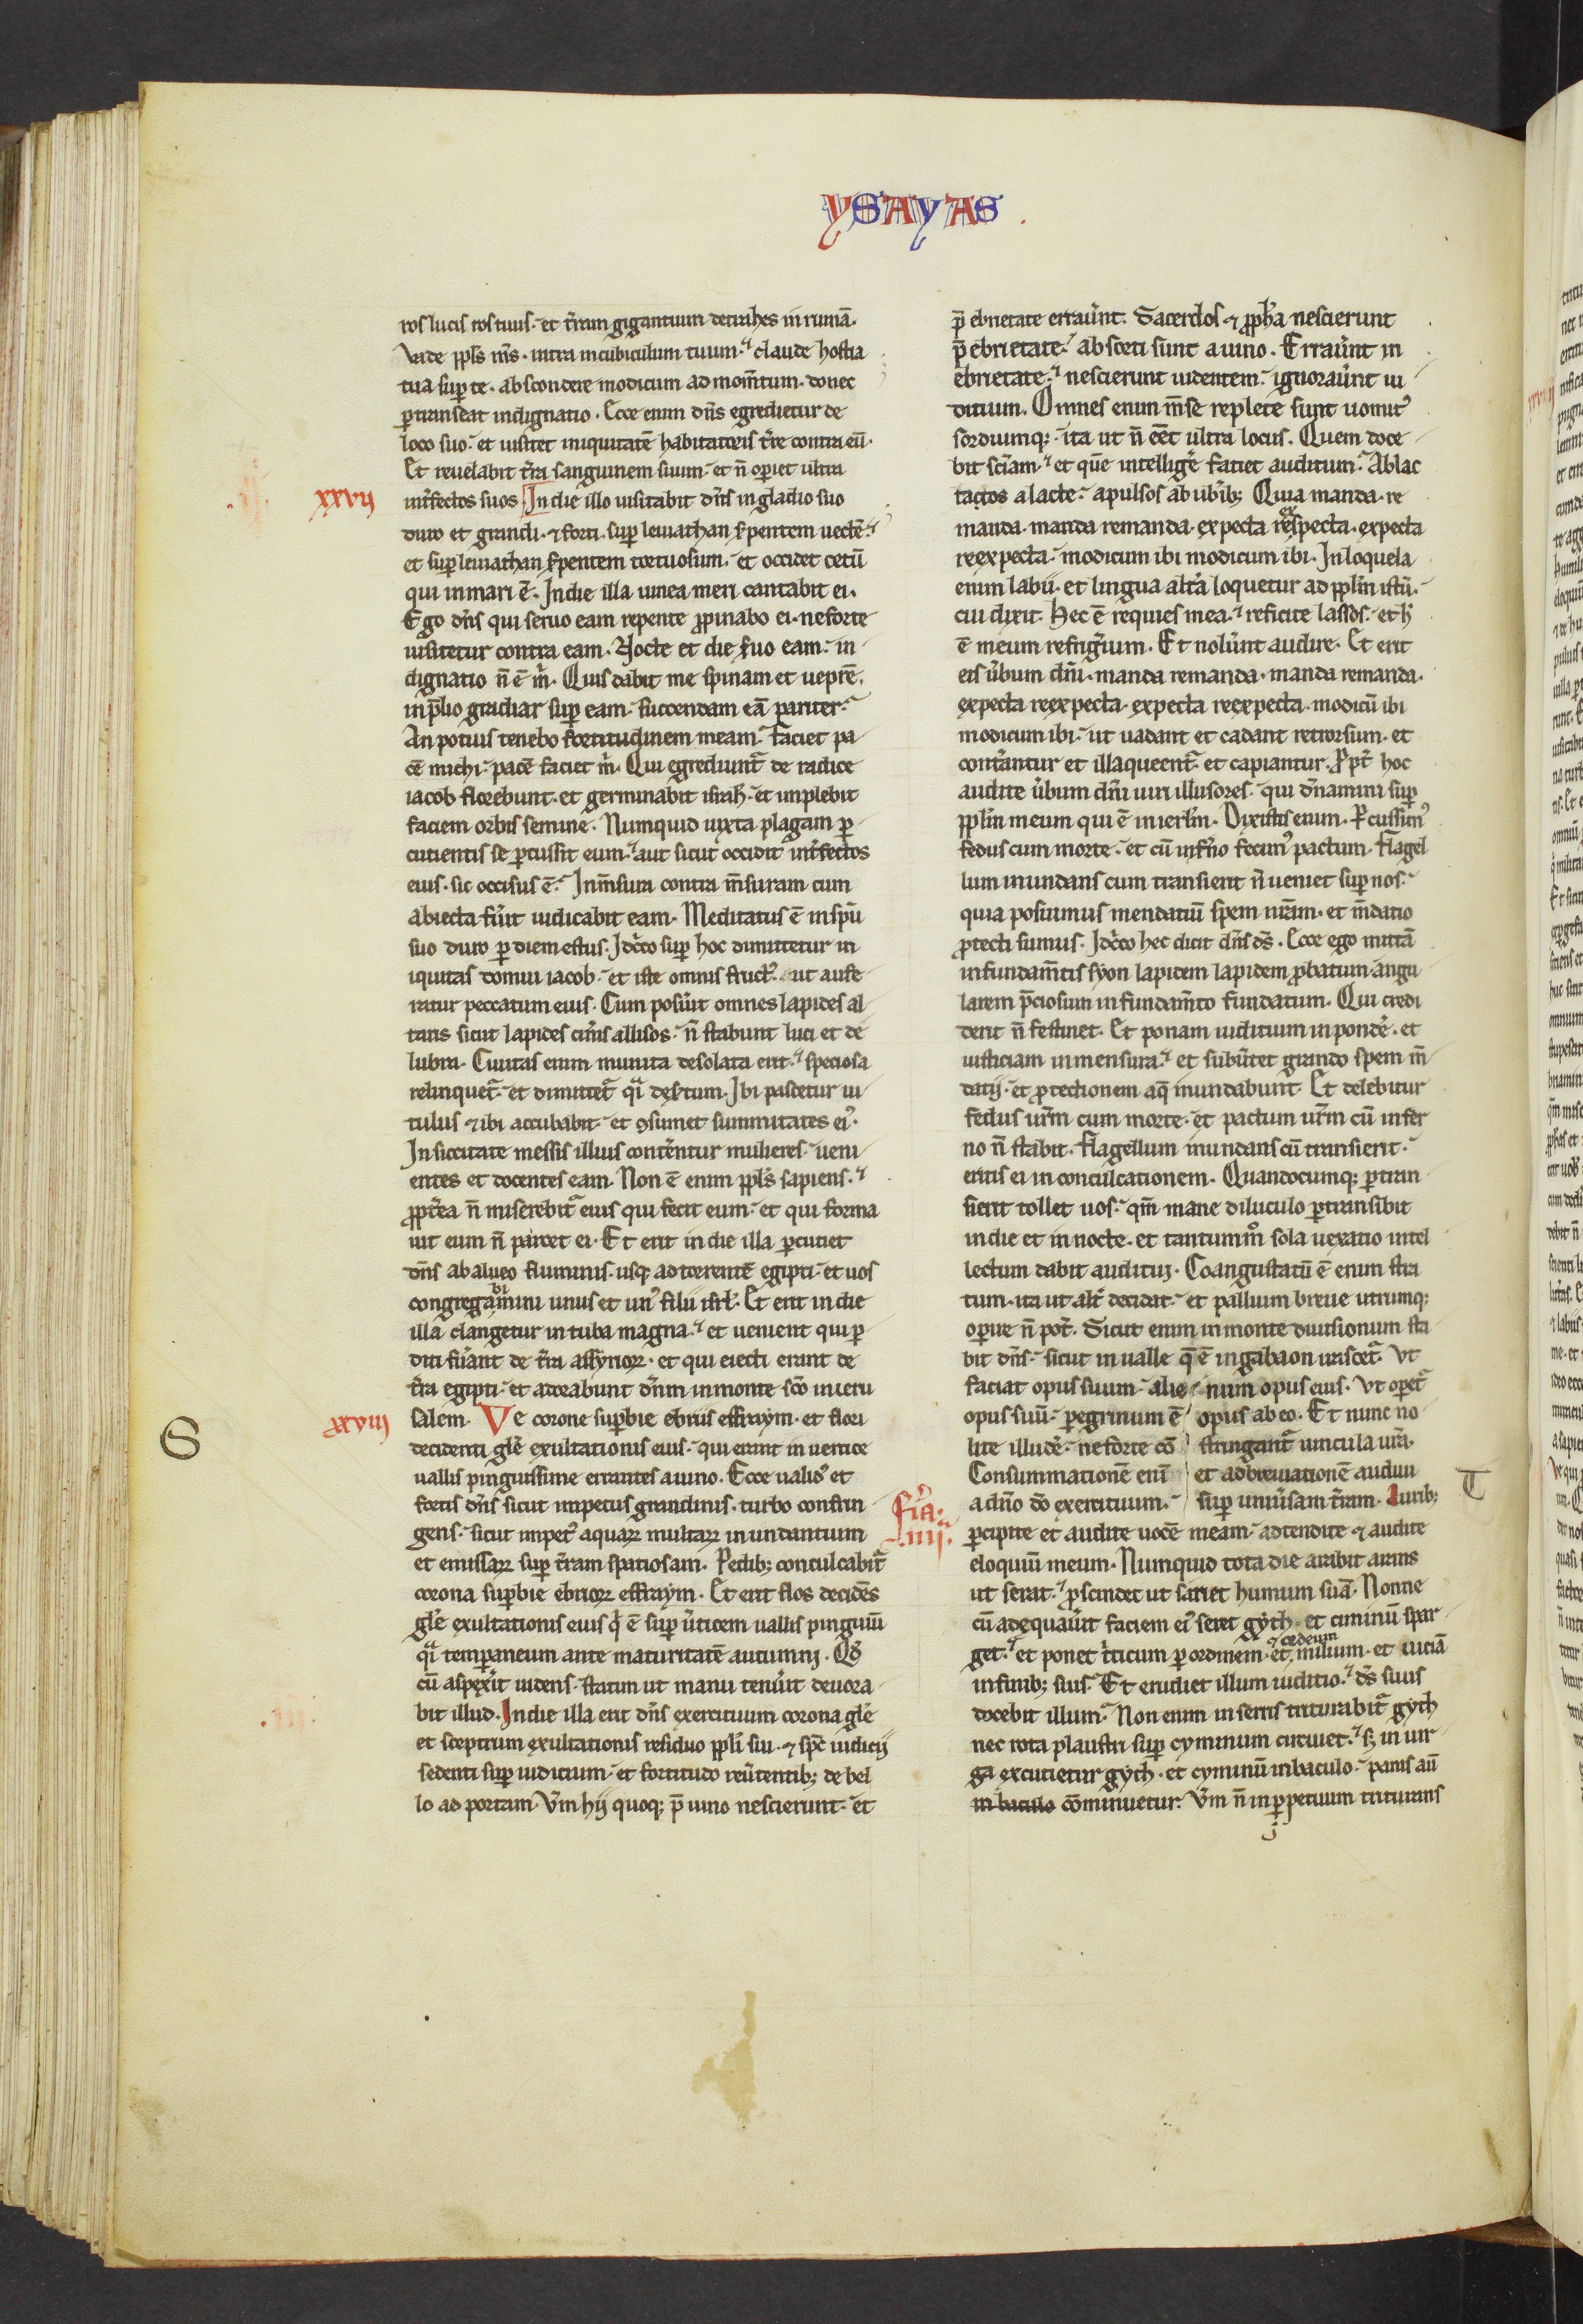 YSAYAS
ros lucis ros tuus. et t̄ram gigantium detrahes in ruinā.
Vade ppl̄s m̄s. intra in cubiculum tuum. ⁊ claude hostia
tua sup̱ te. abscondere modicum ad mom̄tum. donec
p̱transeat indignatio. Ecce enim dn̄s egredietur de
loco suo. et uisitet iniquitatē habitatoris t̄re contra eū.
Et reuelabit t̄ra sanguinem suum. et n̄ op̱iet ultra
xxvij
int̄fectos suos. In die illo uisitabit dn̄s in gladio suo
duro et grandi. ⁊ forti. sup̱ leuiathan s̄pentem uectē. ⁊
et sup̱ leuiathan s̄pentem tortuosum. et occidet cetū
qui in mari ē. In die illa uinea meri cantabit ei.
Ego dn̄s qui seruo eam repente ꝓpinabo ei. ne forte
uisitetur contra eam. Nocte et die s̄uo eam. in
dignatio n̄ ē m̄. Quis dabit me spinam et ueprē.
in p̄lio gradiar sup̱ eam. succendam eā pariter.
An potius tenebo fortitudinem meam. faciet pa
cē michi. pacē faciet m̄. Qui egrediunt̄ de radice
iacob florebunt. et germinabit isrl̄. et implebit
faciem orbis semine. Numquid iuxta plagam p̱
cutientis se p̱cussit eum. aut sicut occidit int̄fectos
eius. sic occisus ē. In m̄sura contra m̄suram cum
abiecta fu̾it iudicabit eam. Meditatus ē in spū
suo duro p̱ diem estus. Idc̊o sup̱ hoc dimittetur in
iquitas domui iacob. et iste omnis fruct᾽. ut aufe
ratur peccatum eius. Cum posu̾it omnes lapides al
taris sicut lapides cin̄is allisos. n̄ stabunt luci et de
lubra. Ciuitas enim munita desolata erit. ⁊ speciosa
relinquet̄. et dimittet̄ qͣi des̄tum. Ibi pascetur ui
tulus ⁊ ibi accubabit. et ꝯsumet summitates ei᾽.
In siccitate messis illius cont̄entur mulieres. ueni
entes et docentes eam. Non ē enim ppl̄s sapiens. ⁊
ꝓpt̄ea n̄ miserebit̄ eius qui fecit eum. et qui forma
uit eum n̄ parcet ei. Et erit in die illa p̱cutiet
dn̄s ab alueo fluminis. usq; ad torrentē egipti. et uos
bi
congregamini unus et un᾽ filii isrl̄. Et erit in die
illa clangetur in tuba magna. ⁊ et uenient qui p̱
diti fu̾ant de t̄ra assyrioꝝ. et qui eiecti erant de
t̄ra egipti. et adorabunt dn̄m in monte sc̄o in ieru
xxviij
salem. Ve corone sup̱bie ebriis effraym. et flori
S
decidenti gl̄e exultationis eius. qui erant in uertice
uallis pinguissime errantes a uino. Ecce ualid᾽ et
fortis dn̄s sicut impetus grandinis. turbo confrin
gens. sicut impet᾽ aquaꝝ multaꝝ inundantium
et emissaꝝ sup̱ t̄ram spatiosam. Pedib; conculcabit̄
corona sup̱bie ebrioꝝ effraym. Et erit flos decidēs
gl̄e exultationis eius q̇ ē sup̱ u̾ticem uallis pinguiū
qͣi temp̱aneum ante maturitatē autumni. Qd̄
cū aspex̾it uidens. statim ut manu tenu̾it deuora
bit illud. In die illa erit dn̄s exercituum corona gl̄e
et sceptrum exultationis residuo ppl̄i sui. ⁊ spc̄ iudicij
sedenti sup̱ iudicium. et fortitudo reu̾tentib; de bel
lo ad portam. Ve̅m hij quoq; p̄ uino nescierunt. et
p̄ ebrietate errau̾nt. Sacerdos ⁊ ꝓph̄a nescierunt
p̄ ebrietate. absorti sunt a uino. Errau̾nt in
ebrietate. ⁊ nescierunt uidentem. ignorau̾nt iu
ditium. Omnes enim m̄se replete sunt uomit᾽
sordiumq;. ita ut n̄ eēt ultra locus. Quem doce
bit sc̄iam. ⁊ et quē intellig̾e faciet auditum. Ablac
tactos a lacte. apulsos ab ub̾ib; Quia manda. re
ex
manda. manda remanda. expecta respecta. expecta
reexpecta. modicum ibi modicum ibi. In loquela
enim labii. et lingua alt̾a loquetur ad ppl̄m istū.
cui dixit. Hec ē requies mea. ⁊ reficite lassos. et h̄
ē meum refrig̾ium. Et nolu̾nt audire. Et erit
eis u̾bum dn̄i. manda remanda. manda remanda.
expecta reexpecta. expecta reexpecta. modicū ibi
modicum ibi. ut uadant et cadant retrorsum. et
cont̾antur et illaqueent̄. et capiantur. Ꝓpt̄ hoc
audite u̾bum dn̄i uiri illusores. qui dn̄amini sup̱
ppl̄m meum qui ē in ierl̄m. Dixistis enim. P̱cussim᾽
fedus cum morte. et cū inf̾no fecim᾽ pactum. Flagel
lum inundans cum transierit n̄ ueniet sup̱ nos.
quia posuimus mendatiū spem nr̄am. et m̄datio
ꝓtecti sumus. Idc̊o hec dicit dn̄s ds̄. Ecce ego mittā
in fundam̄tis syon lapidem lapidem ꝓbatum angu
larem p̄ciosum in fundam̄to fundatum. Qui credi
derit n̄ festinet. Et ponam iuditium in pond̾e. et
iusticiam in mensura. ⁊ et subu̾tet grando spem m̄
datij. et ꝓtectionem aq̄ inundabunt. Et delebitur
fedus ur̄m cum morte. et pactum ur̄m cū infer
no n̄ stabit. Flagellum inundans cū transierit.
eritis ei in conculcationem. Quandocumq; p̱tran
sierit tollet uos. qm̄ mane diluculo p̱transibit
in die et in nocte. et tantummͦ sola uexatio intel
lectum dabit auditui. Coangustatū ē enim stra
tum. ita ut alt̾ decidat. et pallium breue utrumq;
op̱ire n̄ pot̾. Sicut enim in monte diuisionum sta
bit dn̄s. sicut in ualle q̄ ē in gabaon irascet̄. Vt
faciat opus suum. alie num opus eius. Vt op̱et̄
opus suū. p̱egrinum ē opus ab eo. Et nunc no
lite illud̾e. ne forte cō stringant̄ uincula ur̄a.
Consummationē enī et adbreuiationē audiui
T
fr̄ia. iiij.
a dn̄o dō exercituum. sup̱ uniu̾sam t̄ram. Aurib;
p̱cipite et audite uocē meam. adtendite ⁊ audite
eloquiū meum. Numquid tota die arabit arans
ut serat. ⁊ ꝓscindet ut sariet humum suā. Nonne
cū adequau̾it faciem ei᾽ seret gyth. et ciminū spar
⁊ ordeum
get. ⁊ et ponet t̾ticum p̱ ordinem. et milium. et uiciā
in finib; suis. Et erudiet illum iuditio. ⁊ ds̄ suus
docebit illum. Non enim in serris triturabit̄ gyth
nec rota plaustri sup̱ cyminum circuiet. ⁊ s; in uir
ga excutietur gyth. et cyminū in baculo. panis aū
in baculo cōminuetur. Ve̅m n̄ in p̱petuum triturans